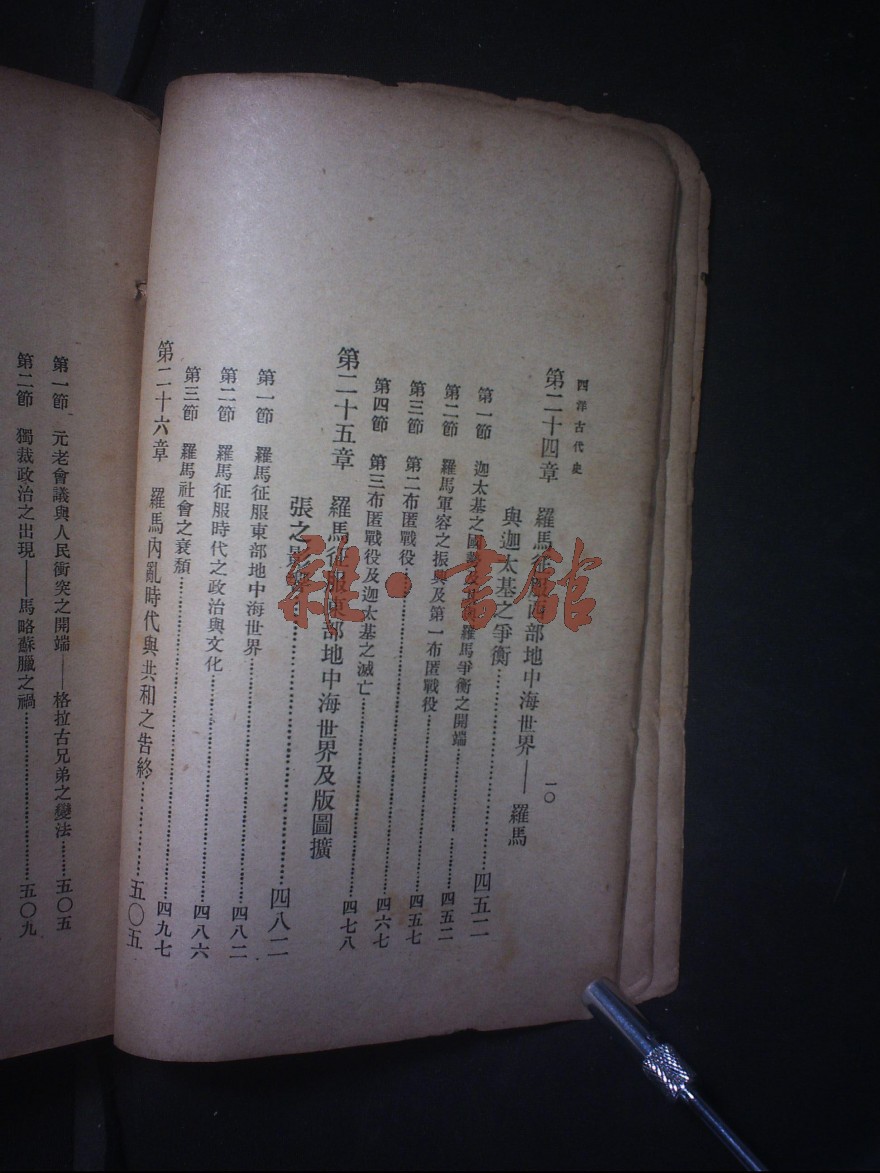 西洋古代史
一〇
第二十四章 羅馬征服西部地中海世界——羅馬
與迦太基之爭衡……四五二
第一節 迦太基之國勢及其與羅馬爭衡之開端……四五二
第二節 羅馬軍容之振興及第一布匿戰役……四五七
第三節 第二布匿戰役……四六七
第四節 第三布匿戰役及迦太基之滅亡……四七八
第二十五章 羅馬征服東部地中海世界及版圖擴
張之影響……四八二
第一節 羅馬征服東部地中海世界……四八二
第二節 羅馬征服時代之政治與文化……四八六
第三節 羅馬社會之衰頹……四九七
第二十六章 羅馬內亂時代與共和之告終……五〇五
第一節 元老會議與人民衝突之開端——格拉古兄弟之變法……五〇五
第二節 獨裁政治之出現——馬略蘇臘之禍……五〇九
雜·書館